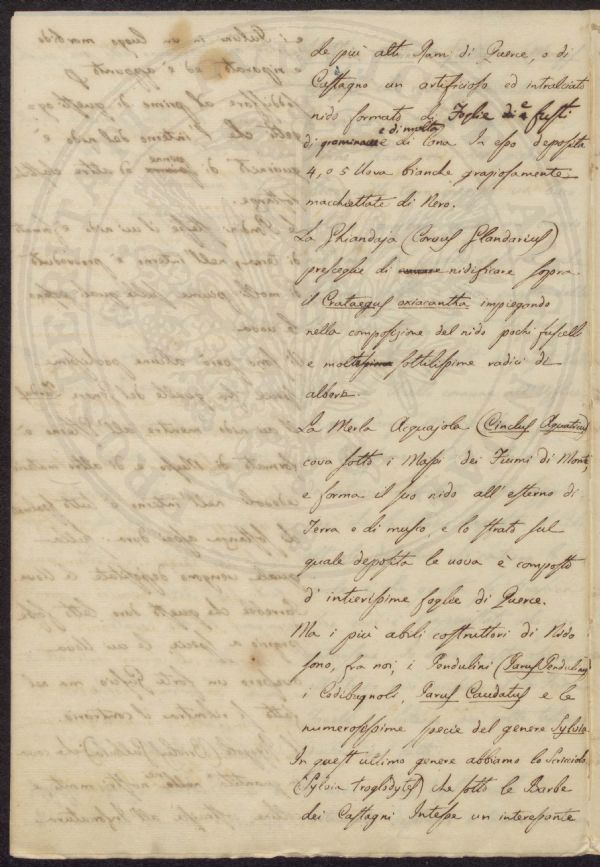 le più alti Rami di Querce, o di
Castagno un artificioso ed intralciato
nido formato di Foglie e fusti
di graminacee e di molta Lana In esso deposita
4, o 5 Uova bianche graziosamente
macchiettate di Nero.
La Ghiandaja (Corvus Glandarius)
presceglie di nidificare sopra
il Crataegus oxiacantha impiegando
nella composizione del nido pochi fuscelli
e molte sottilissime radici di
albero.
La Merla Acquajola (Cinclus Aquaticus)
cova sotto i Massi dei Fiumi di Monte
e forma il suo nido all' esterno di
Terra e di musco, e lo strato sul
quale deposita le uova è composto
d' intierissime foglie di Querce.
Ma i più abili costruttori di Nido
sono, fra noi, i Pendulini (Parus Pendulinus)
i Codibugnoli, Parus Caudatus e le
numerosissime specie del genere Sylvia
In quest' ultimo genere abbiamo lo Scricciolo
(Sylvia troglodytes) che sotto le Barbe
dei Castagni Intesse un interessante